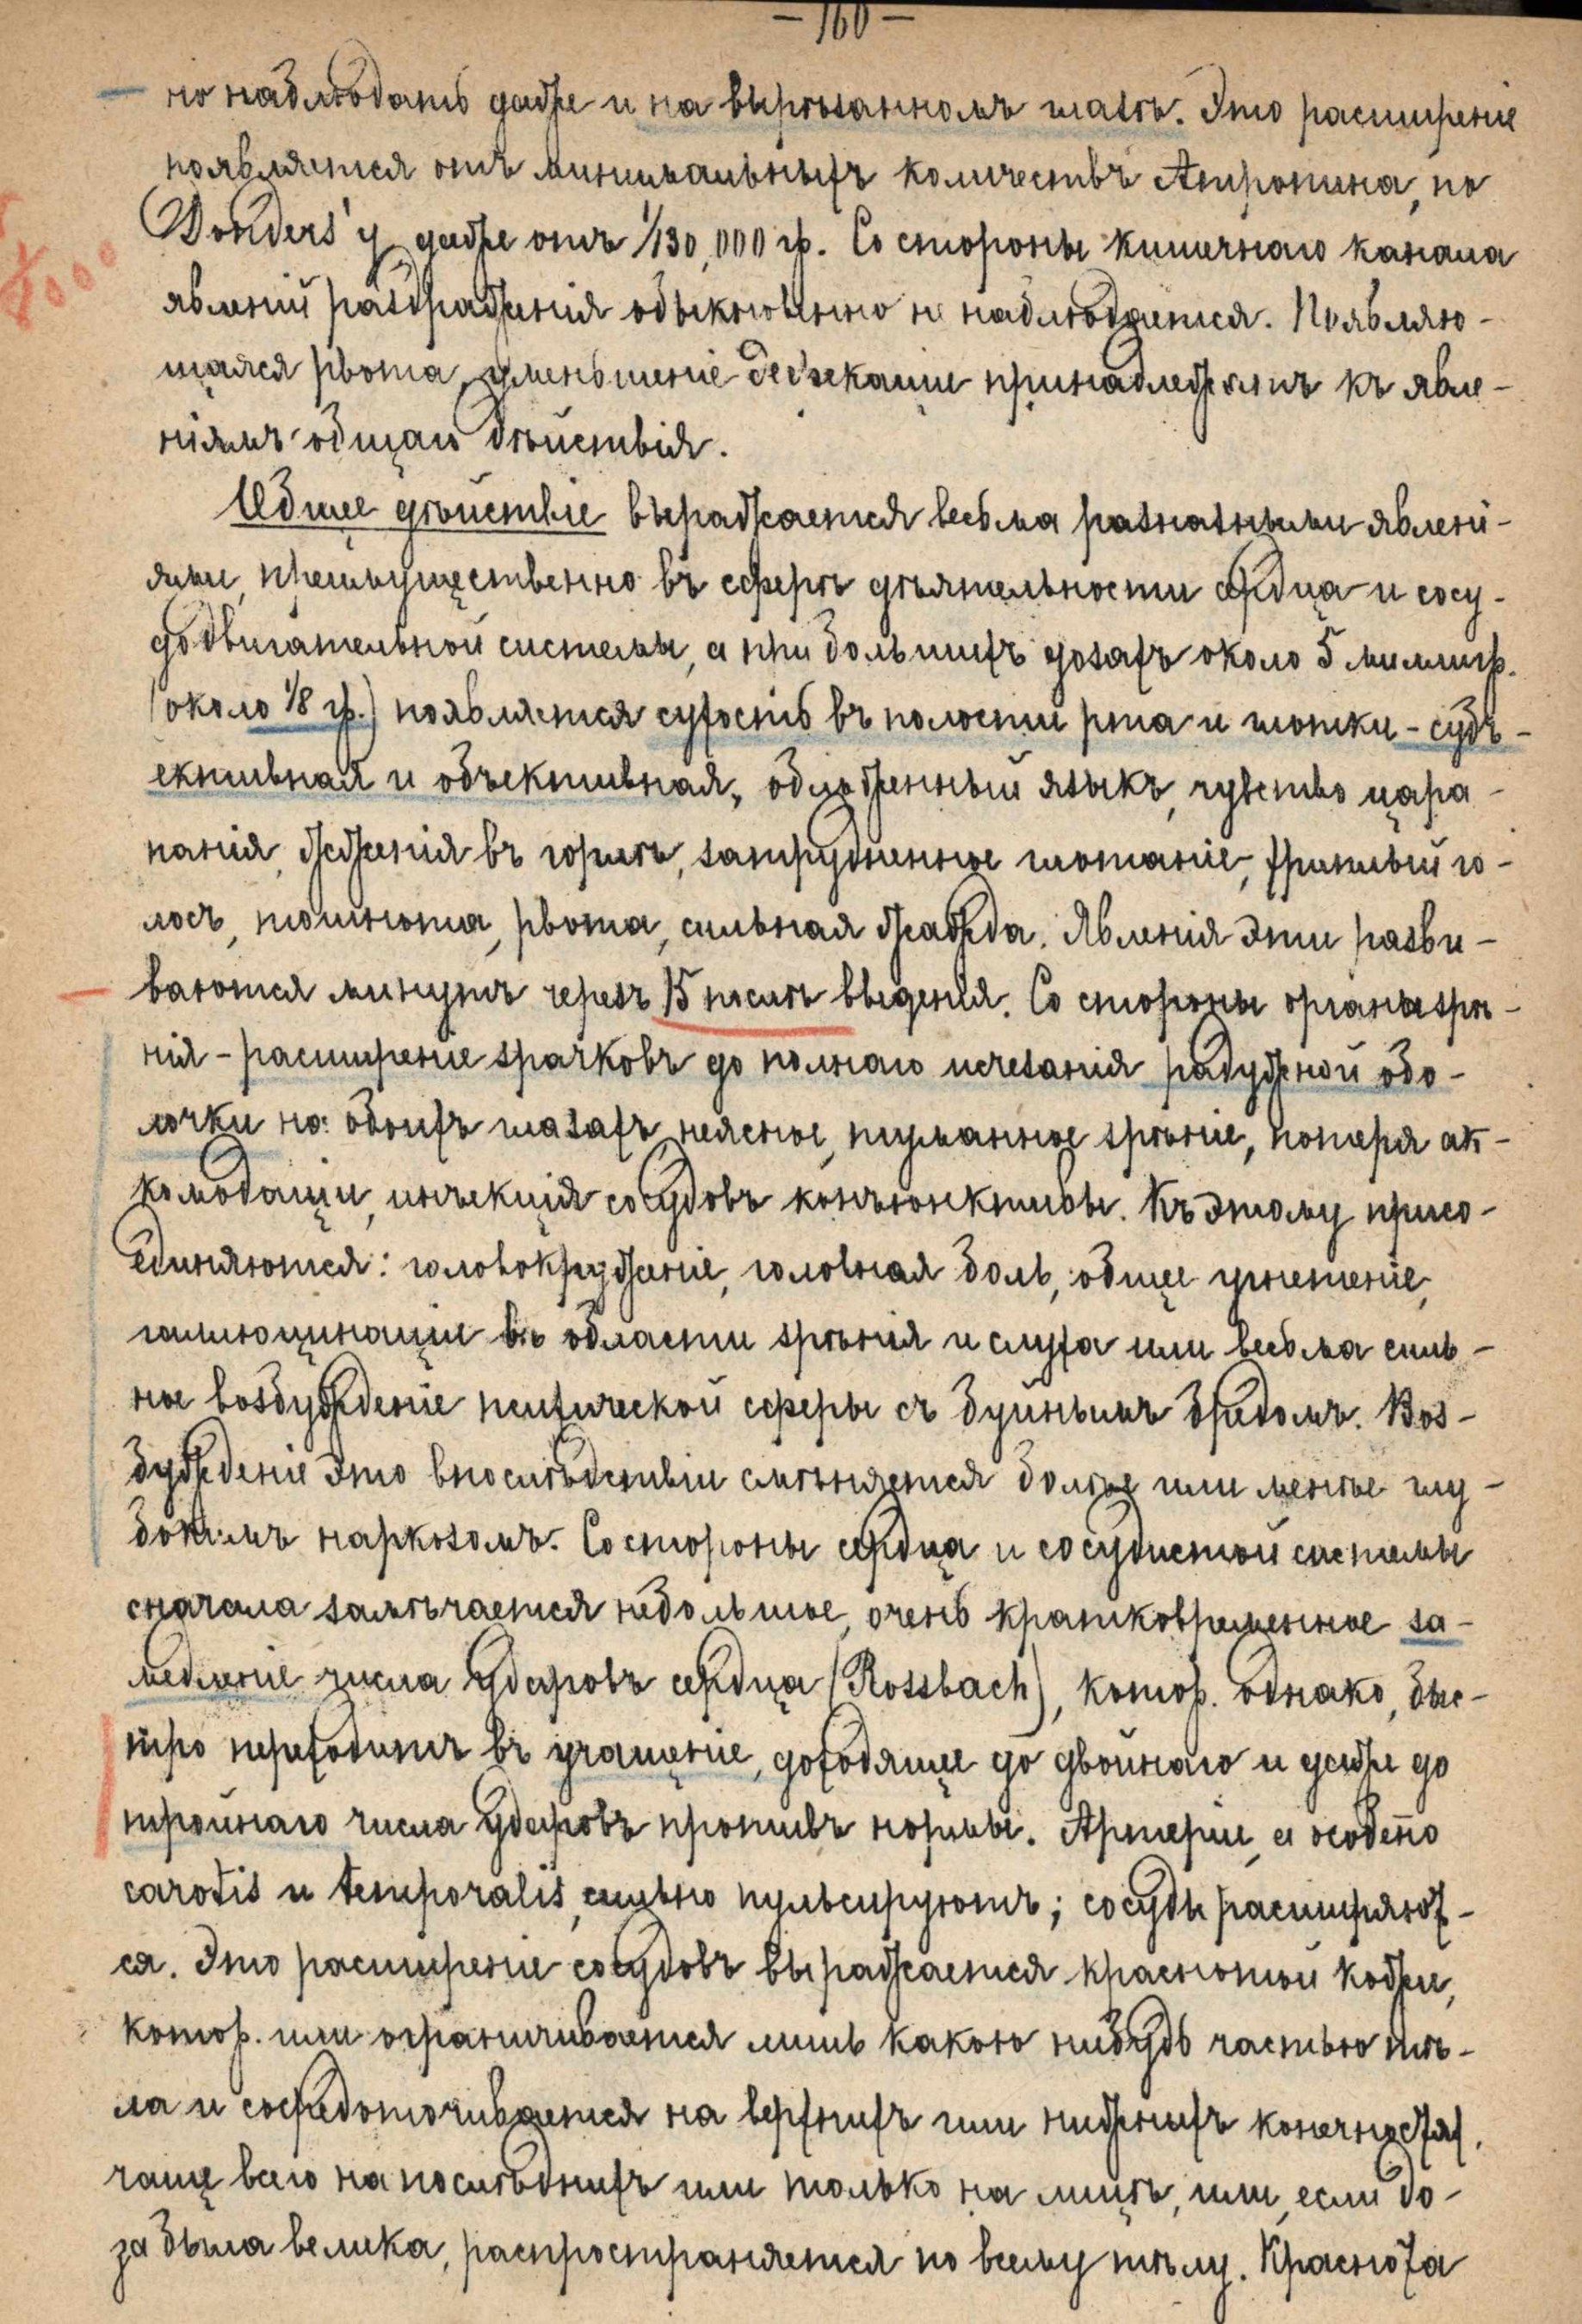 — 160 —
но наблюдать даже и на вырѣзанномъ глазѣ. Это расширеніе
появляется отъ минимальныхъ количествъ Атропина, по
Donders'у даже отъ 1/130,000 гр. Со стороны кишечнаго канала
явленій раздраженія обыкновенно не наблюдается. Появляю-
щаяся рвота, уменьшеніе принадлежатъ къ явле-
ніямъ общаго дѣйствія.
Общее дѣйствіе выражается весьма разназными явлені-
ями, преимущественно въ сферѣ дѣятельности сердца и сосу-
додвигательной системы, а при большихъ дозахъ около 5 миллигр.
(около 1/8 гр.) появляется сухость въ полости рта и глотки - субъ-
ективная и объективная, обложенный языкъ, чувство цара-
панія, жженія въ горлѣ, затрудненное глотаніе, хриплый го-
лосъ, тошнота, рвота, сильная жажда. Явленія эти разви-
ваются минутъ черезъ 15 послѣ введенія. Со стороны органа зрѣ-
нія - расширеніе зрачковъ до полнаго исчезанія радужной обо-
лочки на обоихъ глазахъ, неясное, туманное зрѣніе, потеря ак-
комодаціи, инъекція сосудовъ конъюнктивы. Къ этому присо-
единяются: головокруженіе, головная боль, общее угнетеніе,
галлюцинаціи въ области зрѣнія и слуха или весьма силь-
ное возбужденіе психической сферы съ буйнымъ бредомъ. Воз-
бужденіе это впослѣдствіи смѣняется болѣе или менѣе глу-
бокимъ наркозомъ. Со стороны сердца и сосудистой системы
сначала замѣчается небольшое, очень кратковременное за-
медленіе числа ударовъ сердца (Rossbach), котор. однако, быс-
тро переходитъ въ учащеніе, доходящее до двойнаго и даже до
тройнаго числа ударовъ противъ нормы. Артеріи, а особено
carotis и temporalis, сильно пульсируютъ; сосуды расширяют-
ся. Это расширеніе сосудовъ выражается краснотой кожи,
котор. или ограничивается лишь какою нибудь частью тѣ-
ла и сосредоточивается на верхнихъ или нижнихъ конечностях,
чаще всего на послѣднихъ или только на лицѣ, или, если до-
за была велика, распространяется по всему тѣлу. Краснота